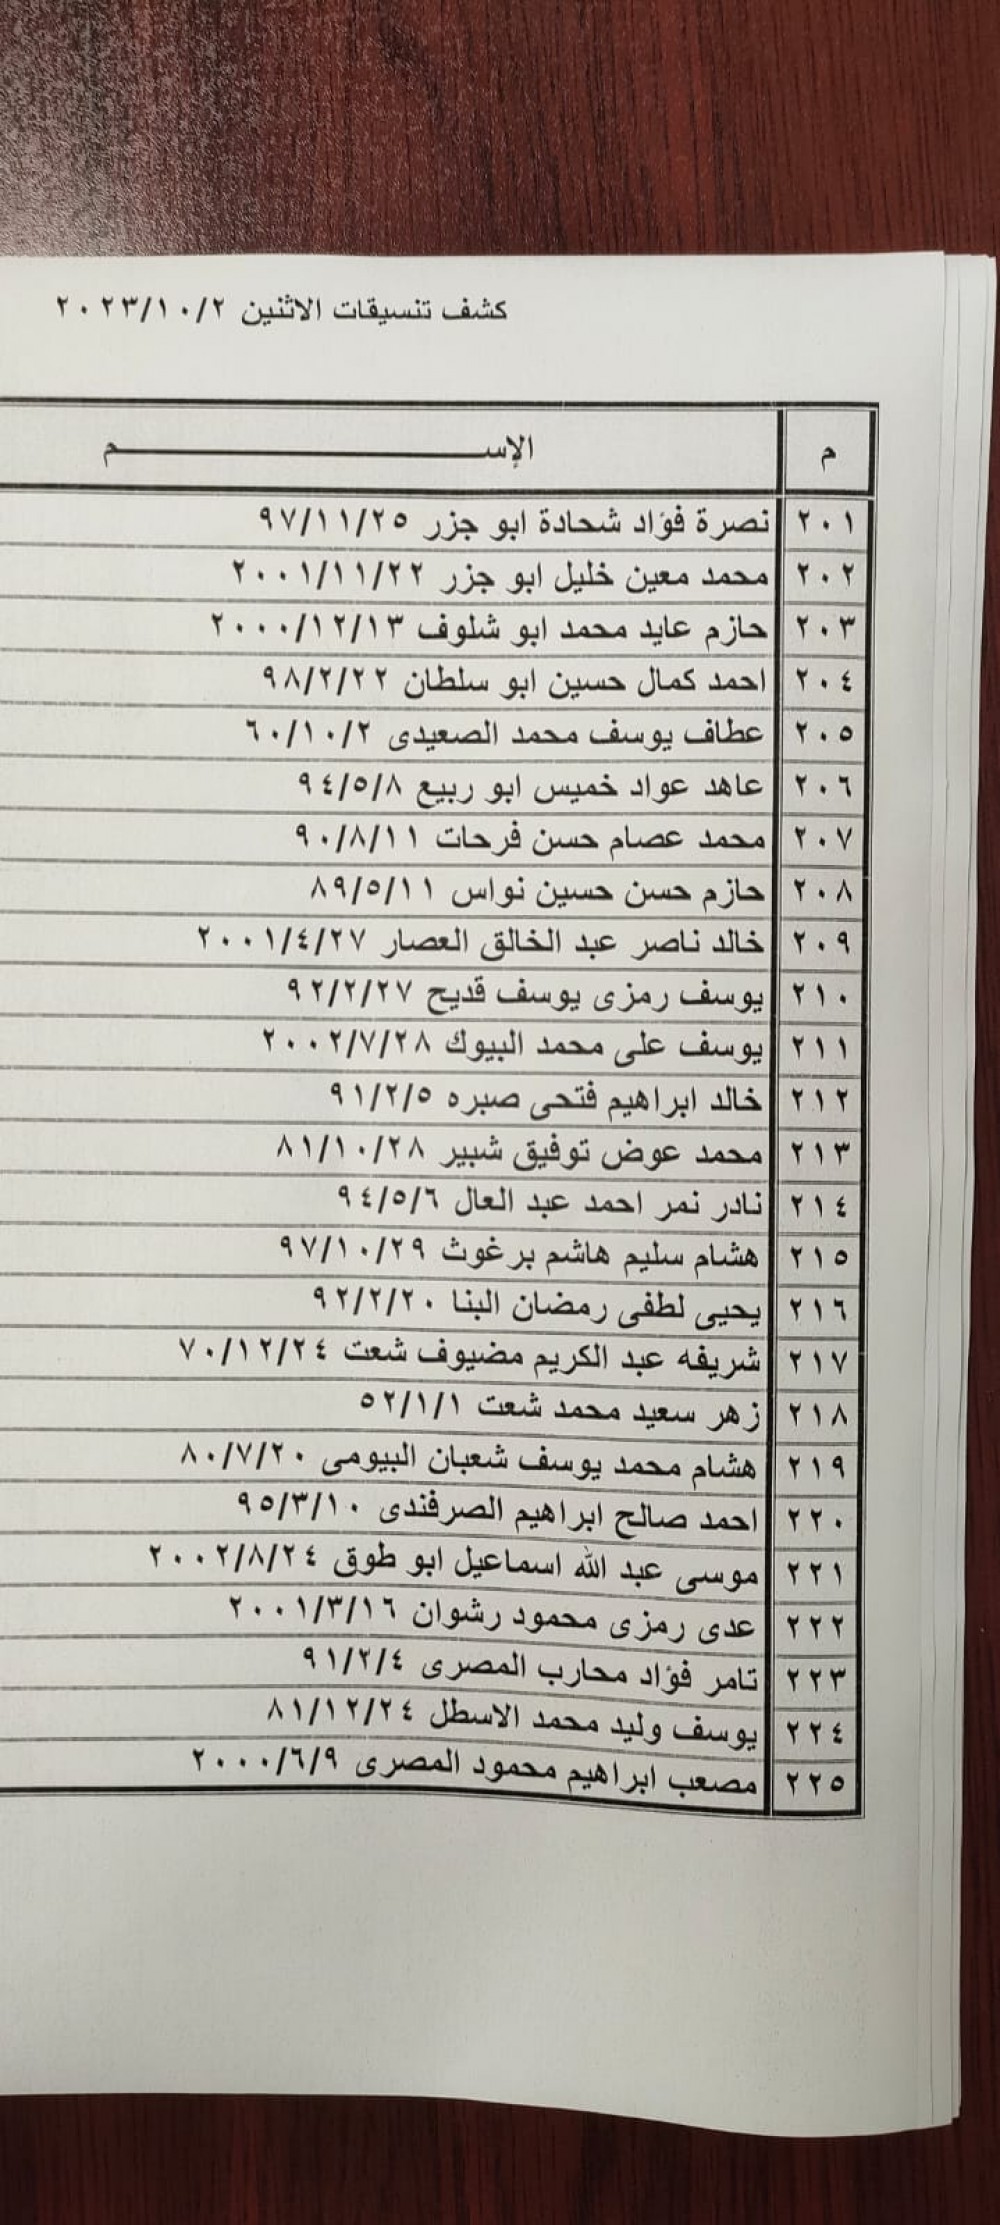 كشف تنسيقات الاثنين ٢٠٢٣/١٠/٢
م الإســـــــــــــــــــــــم
٢٠١ نصرة فؤاد شحادة ابو جزر ٩٧/١١/٢٥
٢٠٢ محمد معين خليل ابو جزر ٢٠٠١/١١/٢٢
٢٠٣ حازم عايد محمد ابو شلوف ٢٠٠٠/١٢/١٣
٢٠٤ احمد كمال حسين ابو سلطان ٩٨/٢/٢٢
٢٠٥ عطاف يوسف محمد الصعيدى ٦٠/١٠/٢
٢٠٦ عاهد عواد خميس ابو ربيع ٩٤/٥/٨
٢٠٧ محمد عصام حسن فرحات ٩٠/٨/١١
٢٠٨ حازم حسن حسين نواس ٨٩/٥/١١
٢٠٩ خالد ناصر عبد الخالق العصار ٢٠٠١/٤/٢٧
٢١٠ يوسف رمزى يوسف قديح ٩٢/٢/٢٧
٢١١ يوسف على محمد البيوك ٢٠٠٢/٧/٢٨
٢١٢ خالد ابراهيم فتحى صبره ٩١/٢/٥
٢١٣ محمد عوض توفيق شبير ٨١/١٠/٢٨
٢١٤ نادر نمر احمد عبد العال ٩٤/٥/٦
٢١٥ هشام سليم هاشم برغوث ٩٧/١٠/٢٩
٢١٦ يحيى لطفى رمضان البنا ٩٢/٢/٢٠
٢١٧ شريفه عبد الكريم مضيوف شعت ٧٠/١٢/٢٤
٢١٨ زهر سعيد محمد شعت ٥٢/١/١
٢١٩ هشام محمد يوسف شعبان البيومى ٨٠/٧/٢٠
٢٢٠ احمد صالح ابراهيم الصرفندى ٩٥/٣/١٠
٢٢١ موسى عبد الله اسماعيل ابو طوق ٢٠٠٢/٨/٢٤
٢٢٢ عدى رمزى محمود رشوان ٢٠٠١/٣/١٦
٢٢٣ تامر فؤاد محارب المصرى ٩١/٢/٤
٢٢٤ يوسف وليد محمد الاسطل ٨١/١٢/٢٤
٢٢٥ مصعب ابراهيم محمود المصرى ٢٠٠٠/٦/٩